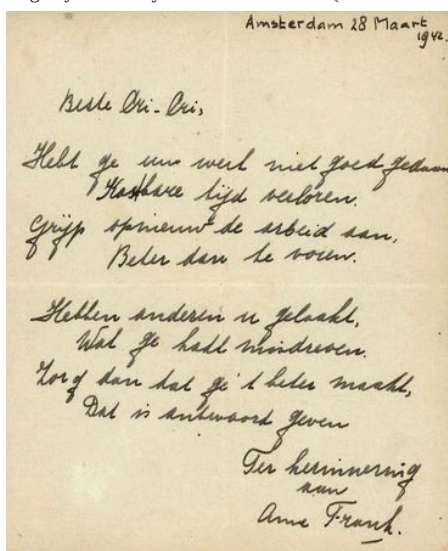 Amsterdam 28 Maart
1942.
Beste Cri-Cri,
Hebt ge uw werk niet goed gedaan
Kostbare tijd verloren.
Grijp opnieuw de arbeid aan,
Beter dan te voren.
Hebben anderen u gelaakt,
Wat ge hadt misdreven.
Zorg dan dat ge 't beter maakt,
Dat is antwoord geven
Ter herinnering
aan
Anne Frank.